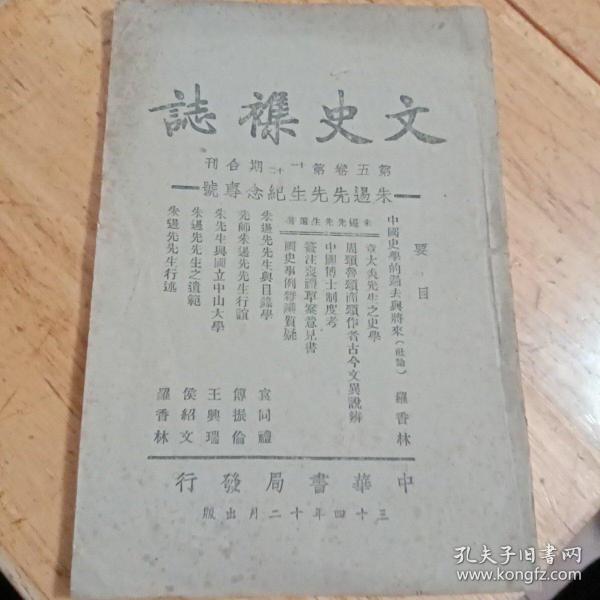 文史襍誌
第五卷第十一十二期合刊
朱逷先先生紀念專號
要目
中國史學的過去與將來（社論） 羅香林
朱逷先先生遺著
章太炎先生之史學
周頌魯頌商頌作者古今文異說辨
中國博士制度考
簽注喪禮草案意見書
國史學例
朱逷先先生與目錄學 袁同禮
先師朱逷先先生行誼 傅振倫
朱先生與國立中山大學 王興瑞
朱逷先先生之遺範 侯紹文
朱逷先先生行述 羅香林
中華書局發行
三十四年十二月出版
孔夫子旧书网
www.kongfz.com